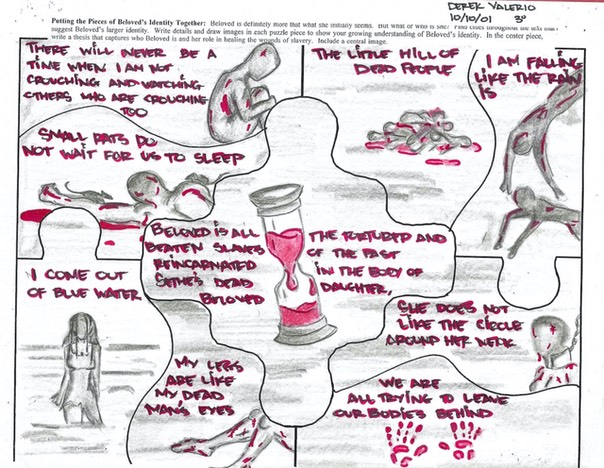 DEREK VALERIO
10/10/01 3°
Putting the Pieces of Beloved's Identity Together: Beloved is definitely more that what she initially seems. But what or who is she? Find clues throughout the text that
suggest Beloved's larger identity. Write details and draw images in each puzzle piece to show your growing understanding of Beloved's identity. In the center piece,
write a thesis that captures who Beloved is and her role in healing the wounds of slavery. Include a central image.
THERE WILL NEVER BE A
TIME WHEN I AM NOT
CROUCHING AND WATCHING
OTHERS WHO ARE CROUCHING
TOO
THE LITTLE HILL OF
DEAD PEOPLE
I AM FALLING
LIKE THE RAIN
IS
SMALL RATS DO
NOT WAIT FOR US TO SLEEP
BELOVED IS ALL THE TORTURED AND
BEATEN SLAVES OF THE PAST
REINCARNATED IN THE BODY OF
SETHE'S DEAD DAUGHTER,
BELOVED
I COME OUT
OF BLUE WATER
SHE DOES NOT
LIKE THE CIRCLE
AROUND HER NECK
MY LEGS
ARE LIKE
MY DEAD
MAN'S EYES
WE ARE
ALL TRYING TO LEAVE
OUR BODIES BEHIND